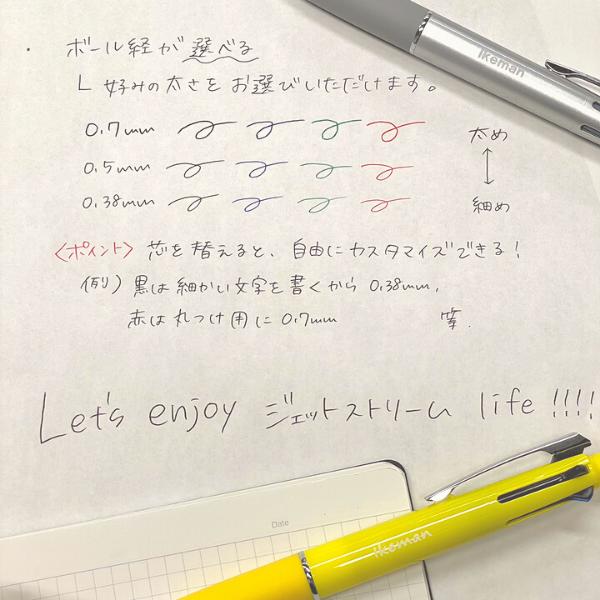 ikeman
・ボール経が選べる
└ 好みの太さをお選びいただけます。
0.7mm
太め
0.5mm
0.38mm
細め
〈ポイント〉 芯を替えると、自由にカスタマイズできる!
(例) 黒は細かい文字を書くから 0.38mm,
赤は丸つけ用に 0.7mm 等.
Let's enjoy ジェットストリーム life !!!!
Date
ikeman